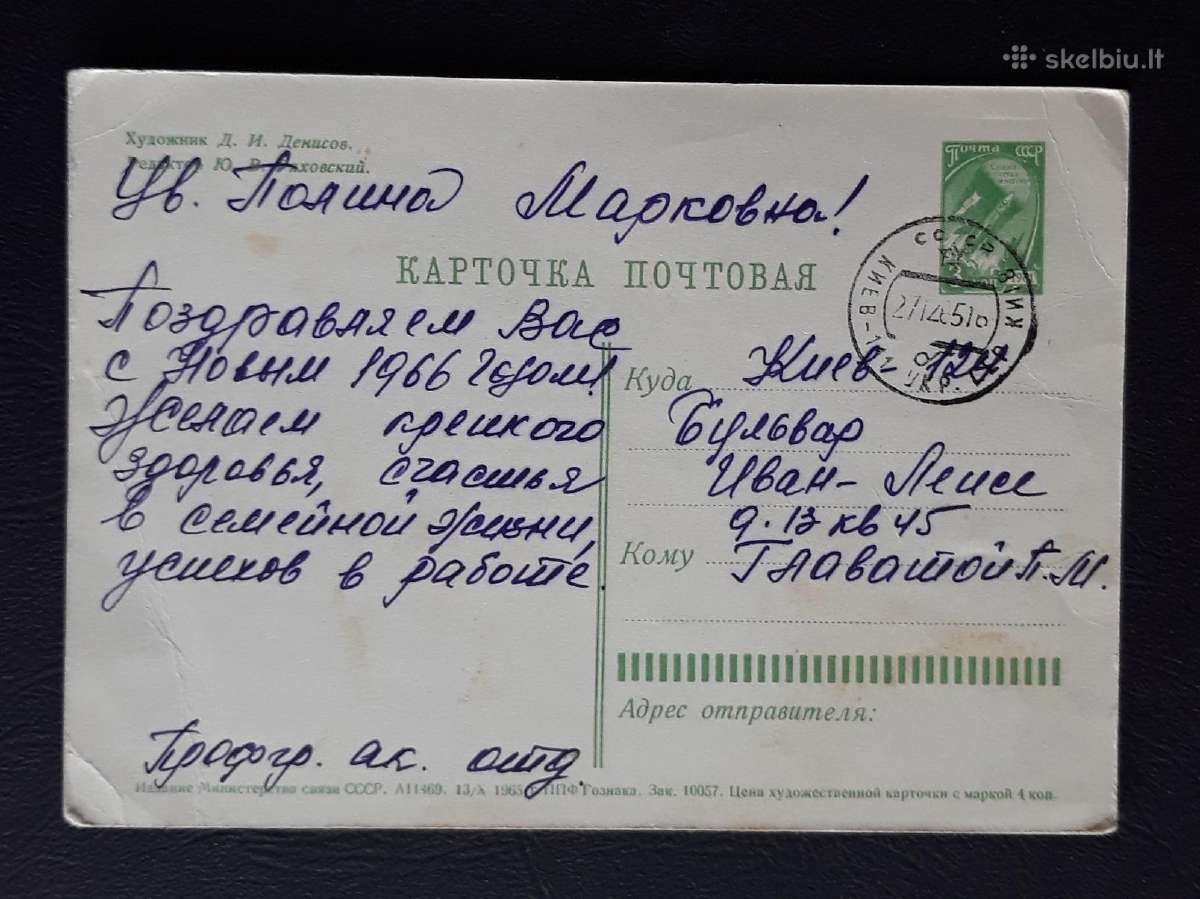 skelbiu.lt
Художник Д. И. Денисов.
Ю.
Почта СССР
Ув. Полина Марковна!
КАРТОЧКА ПОЧТОВАЯ
СССР КИЕВ
Поздравляем Вас
с Новым 1966 годом!
Желаем крепкого
здоровья, счастья
в семейной жизни,
успехов в работе
Профгр. ак. отд.
Куда Киев-
Бульвар
Иван- Лепсе
д. 13 кв 45
Кому Главатой П. М.
Адрес отправителя:
Издание Министерства связи СССР. А11469. 13/X 1965 г. ППФ Гознака. Зак. 10057. Цена художественной карточки с маркой 4 коп.